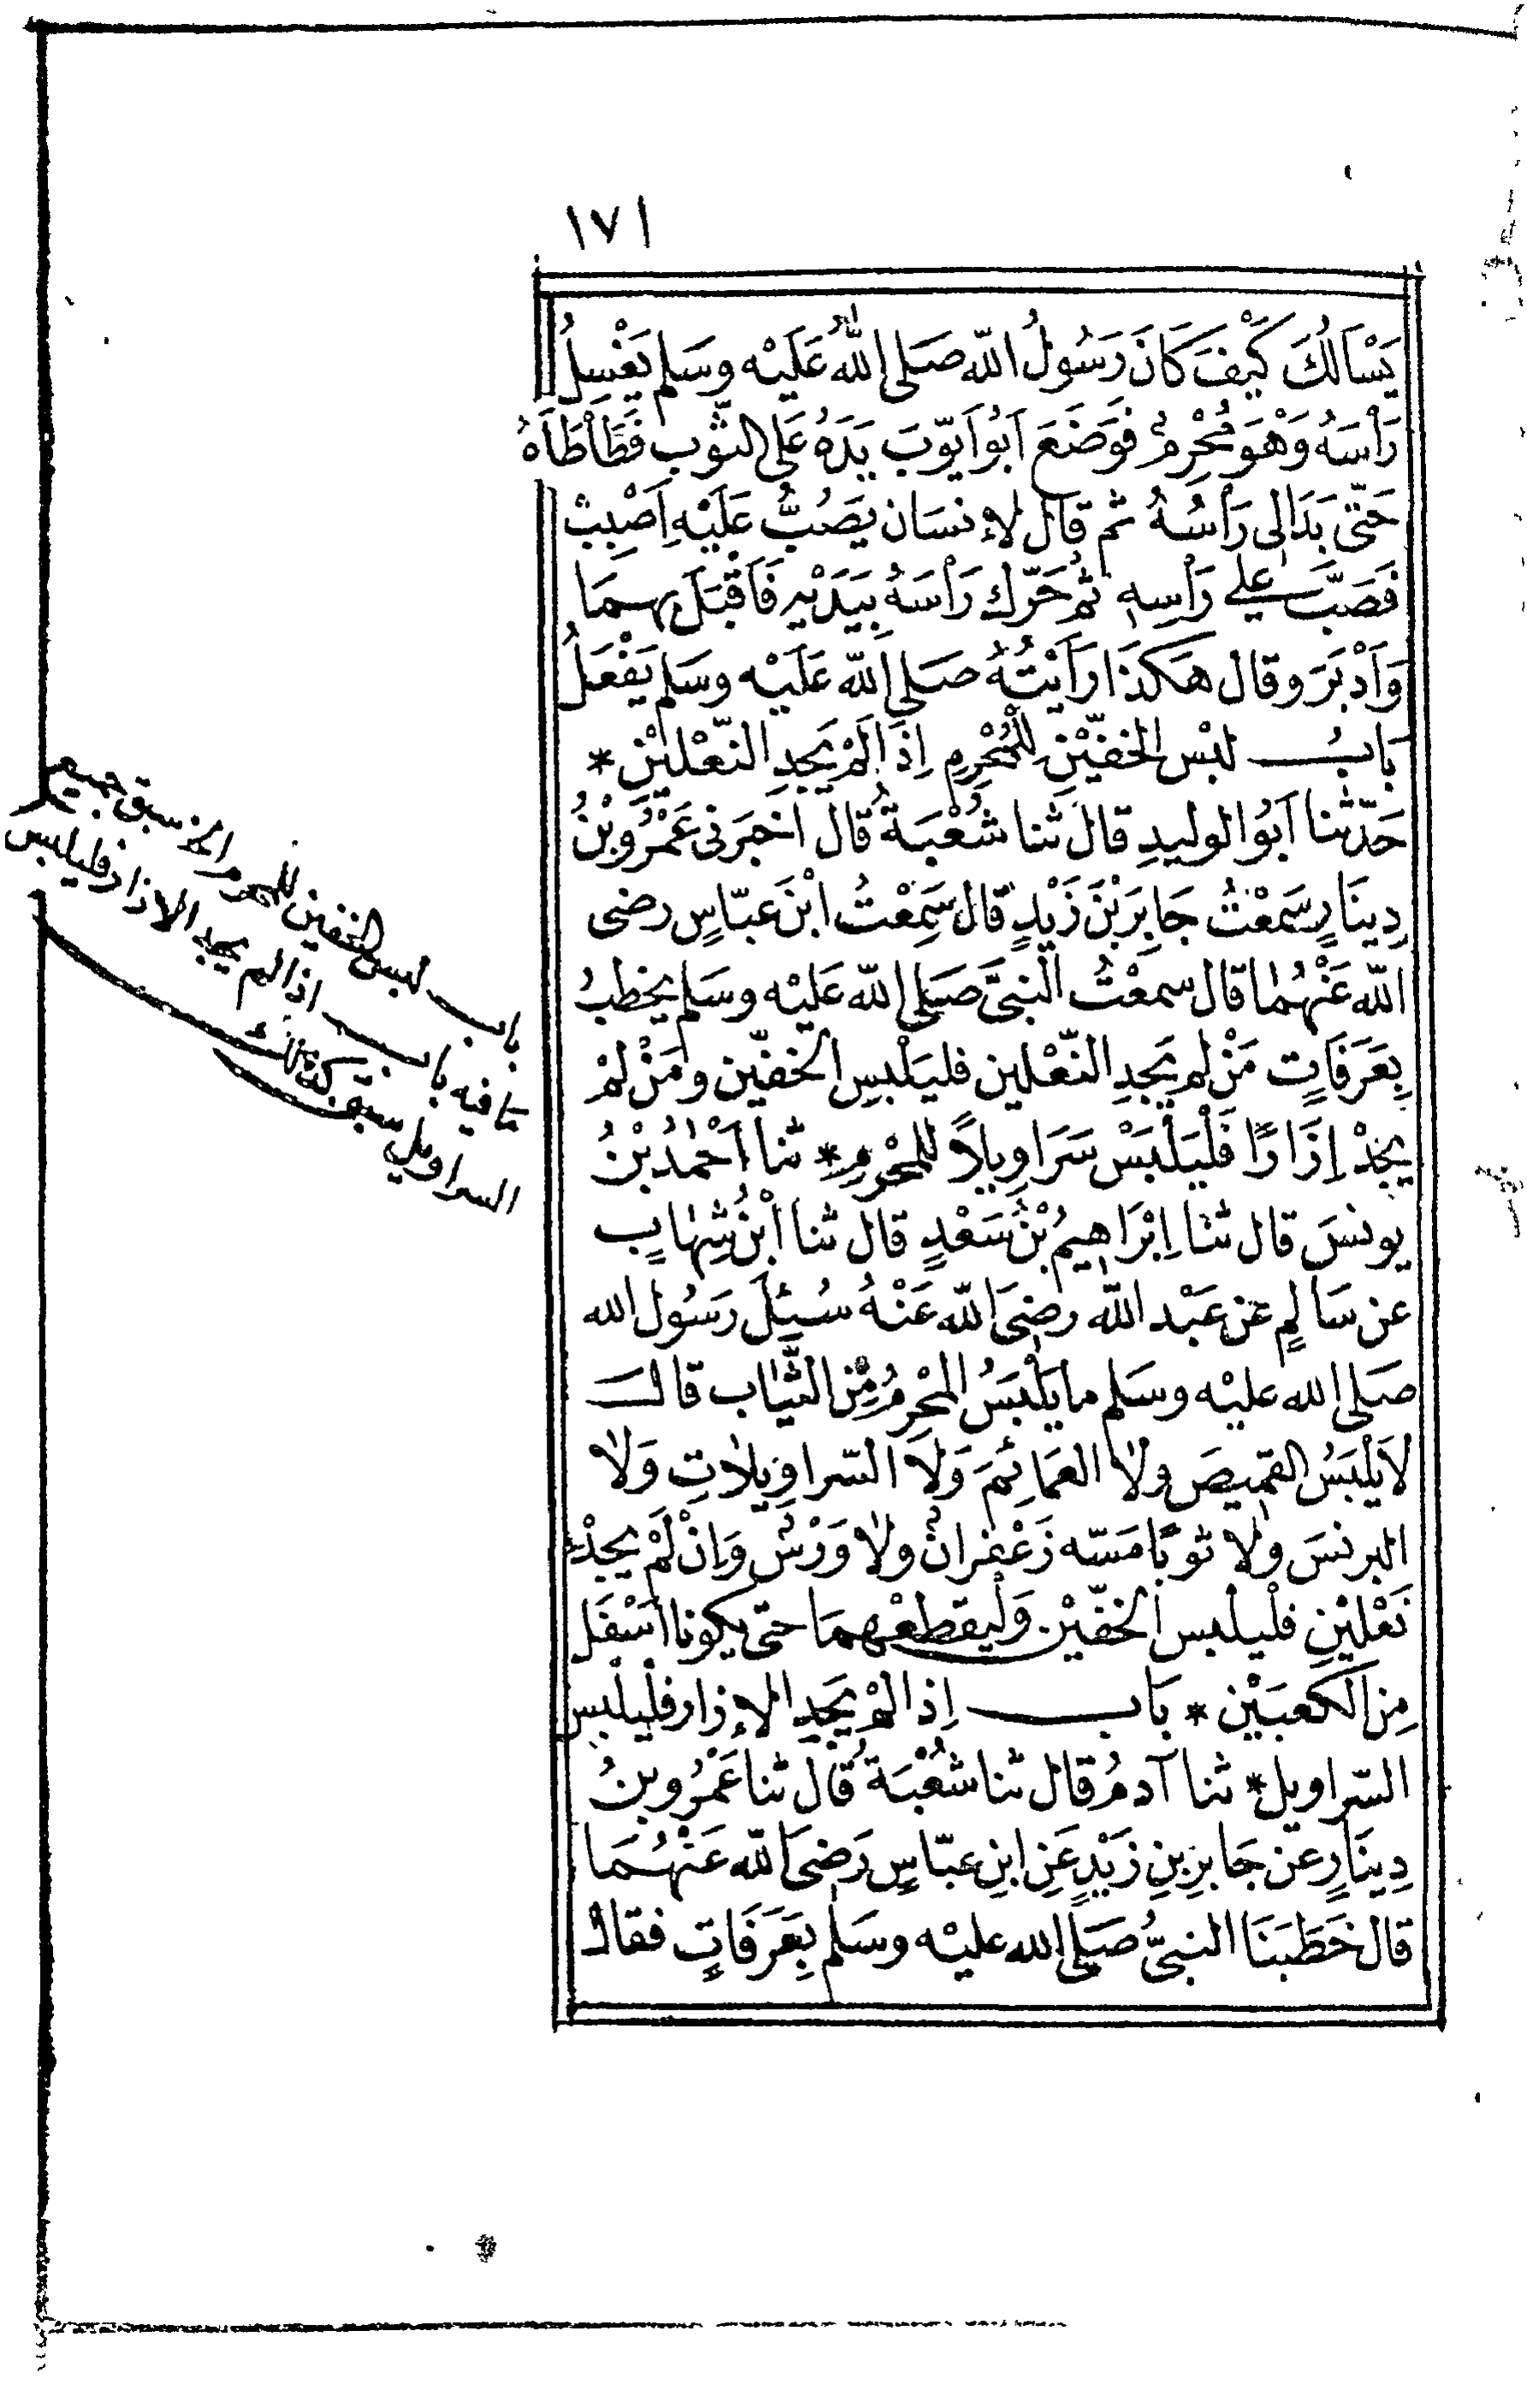 ١٧١
يَسْاَلُكَ كَيْفَ كَانَ رَسُولُ اللّه صَلى اللّٰهُ عَلَيْه وسَلم يَغْسِلُ
رَأْسَهُ وَهْوَ مُحْرِمٌ فَوَضَعَ اَبُو اَيّوبَ يَدَهُ عَلى الثّوب فَطَأْطَأَهُ
حَتّى بَدَالى رَأْسُهُ ثم قال لاِنسَان يَصُبُّ عَلَيْهِ اَصْبِبْ
فَصَبَّ على رَأْسِه ثُم حَرّك رَأْسَهُ بِيَدَيْهِ فَاَقْبَلَ بِهِمَا
وَاَدْبَرَ وقال هَكَذَا رَاَيْتُهُ صَلى اللّه عَلَيْه وسَلم يَفْعَلُ
بَابُ لبْس الخفّيْنِ لِلْمُحْرِمِ اِذَا لَمْ يَجِدِ النّعْلَيْنِ *
حَدّثنا اَبُو الوليدِ قالَ ثنا شُعْبَةُ قال اَخبَرَنى عَمْرُو بْنُ
دِينَارٍ سَمعْتُ جَابِرَ بْنَ زَيْدٍ قال سَمِعْتُ ابْنَ عبّاسٍ رضى
اللّه عَنْهُمٰا قال سمعْتُ النبىَّ صَلى اللّه عَلَيْه وسَلم يخطبُ
بِعَرَفَاتٍ مَنْ لم يَجِدِ النّعْلين فليَلْبسِ الخفّين ومَنْ لمْ
يجِدْ اِزَارًا فَلْيَلْبَسْ سَرَاوِيلاً للمُحْرِمِ * ثنا اَحْمَدُ بْنُ
يونسَ قال ثنا اِبْرَاهيمُ بْنُ سَعْدٍ قال ثنا ابْنُ شِهٰابٍ
عن سَالمٍ عَن عَبْد اللّه رضىَ اللّه عَنْهُ سُئِلَ رَسُول الله
صَلى الله عليْه وسَلم ما يَلْبَسُ المحْرِمُ مِنَ الثّيَاب قالَ
لاَ يَلْبَسُ القميصَ ولاٰ العَمَائِمَ وَلاَ السّرَاوِيلاتِ وَلاٰ
البرنسَ ولاٰ ثوبًا مَسّه زَعْفرانٌ ولاٰ وَرْسٌ وَاِنْ لَمْ يجدْ
نَعْليْنِ فلْيلبس الخفّيْن وَلْيقطعْهمَا حتى يكونا اَسْفَل
مِن الكعبَيْن * بَاب اِذا لمْ يَجِدِ الاِزار فلْيلْبس
السّراويل * ثنا آدمُ قال ثنا شُعْبَةُ قال ثنا عَمْرُو بنُ
دِينَارٍ عن جَابرِ بنِ زَيْدٍ عَنِ ابنِ عبّاسٍ رَضىَ اللّه عَنْهُمَا
قال خَطَبَنَا النبىُّ صَلى الله عليْه وسَلم بِعَرَفَاتٍ فقال
باب لبس الخفين للمحرم الخ سبق جميع
ما فيه باب اذا لم يجد الازار فليلبس
السراويل سبق كذلك